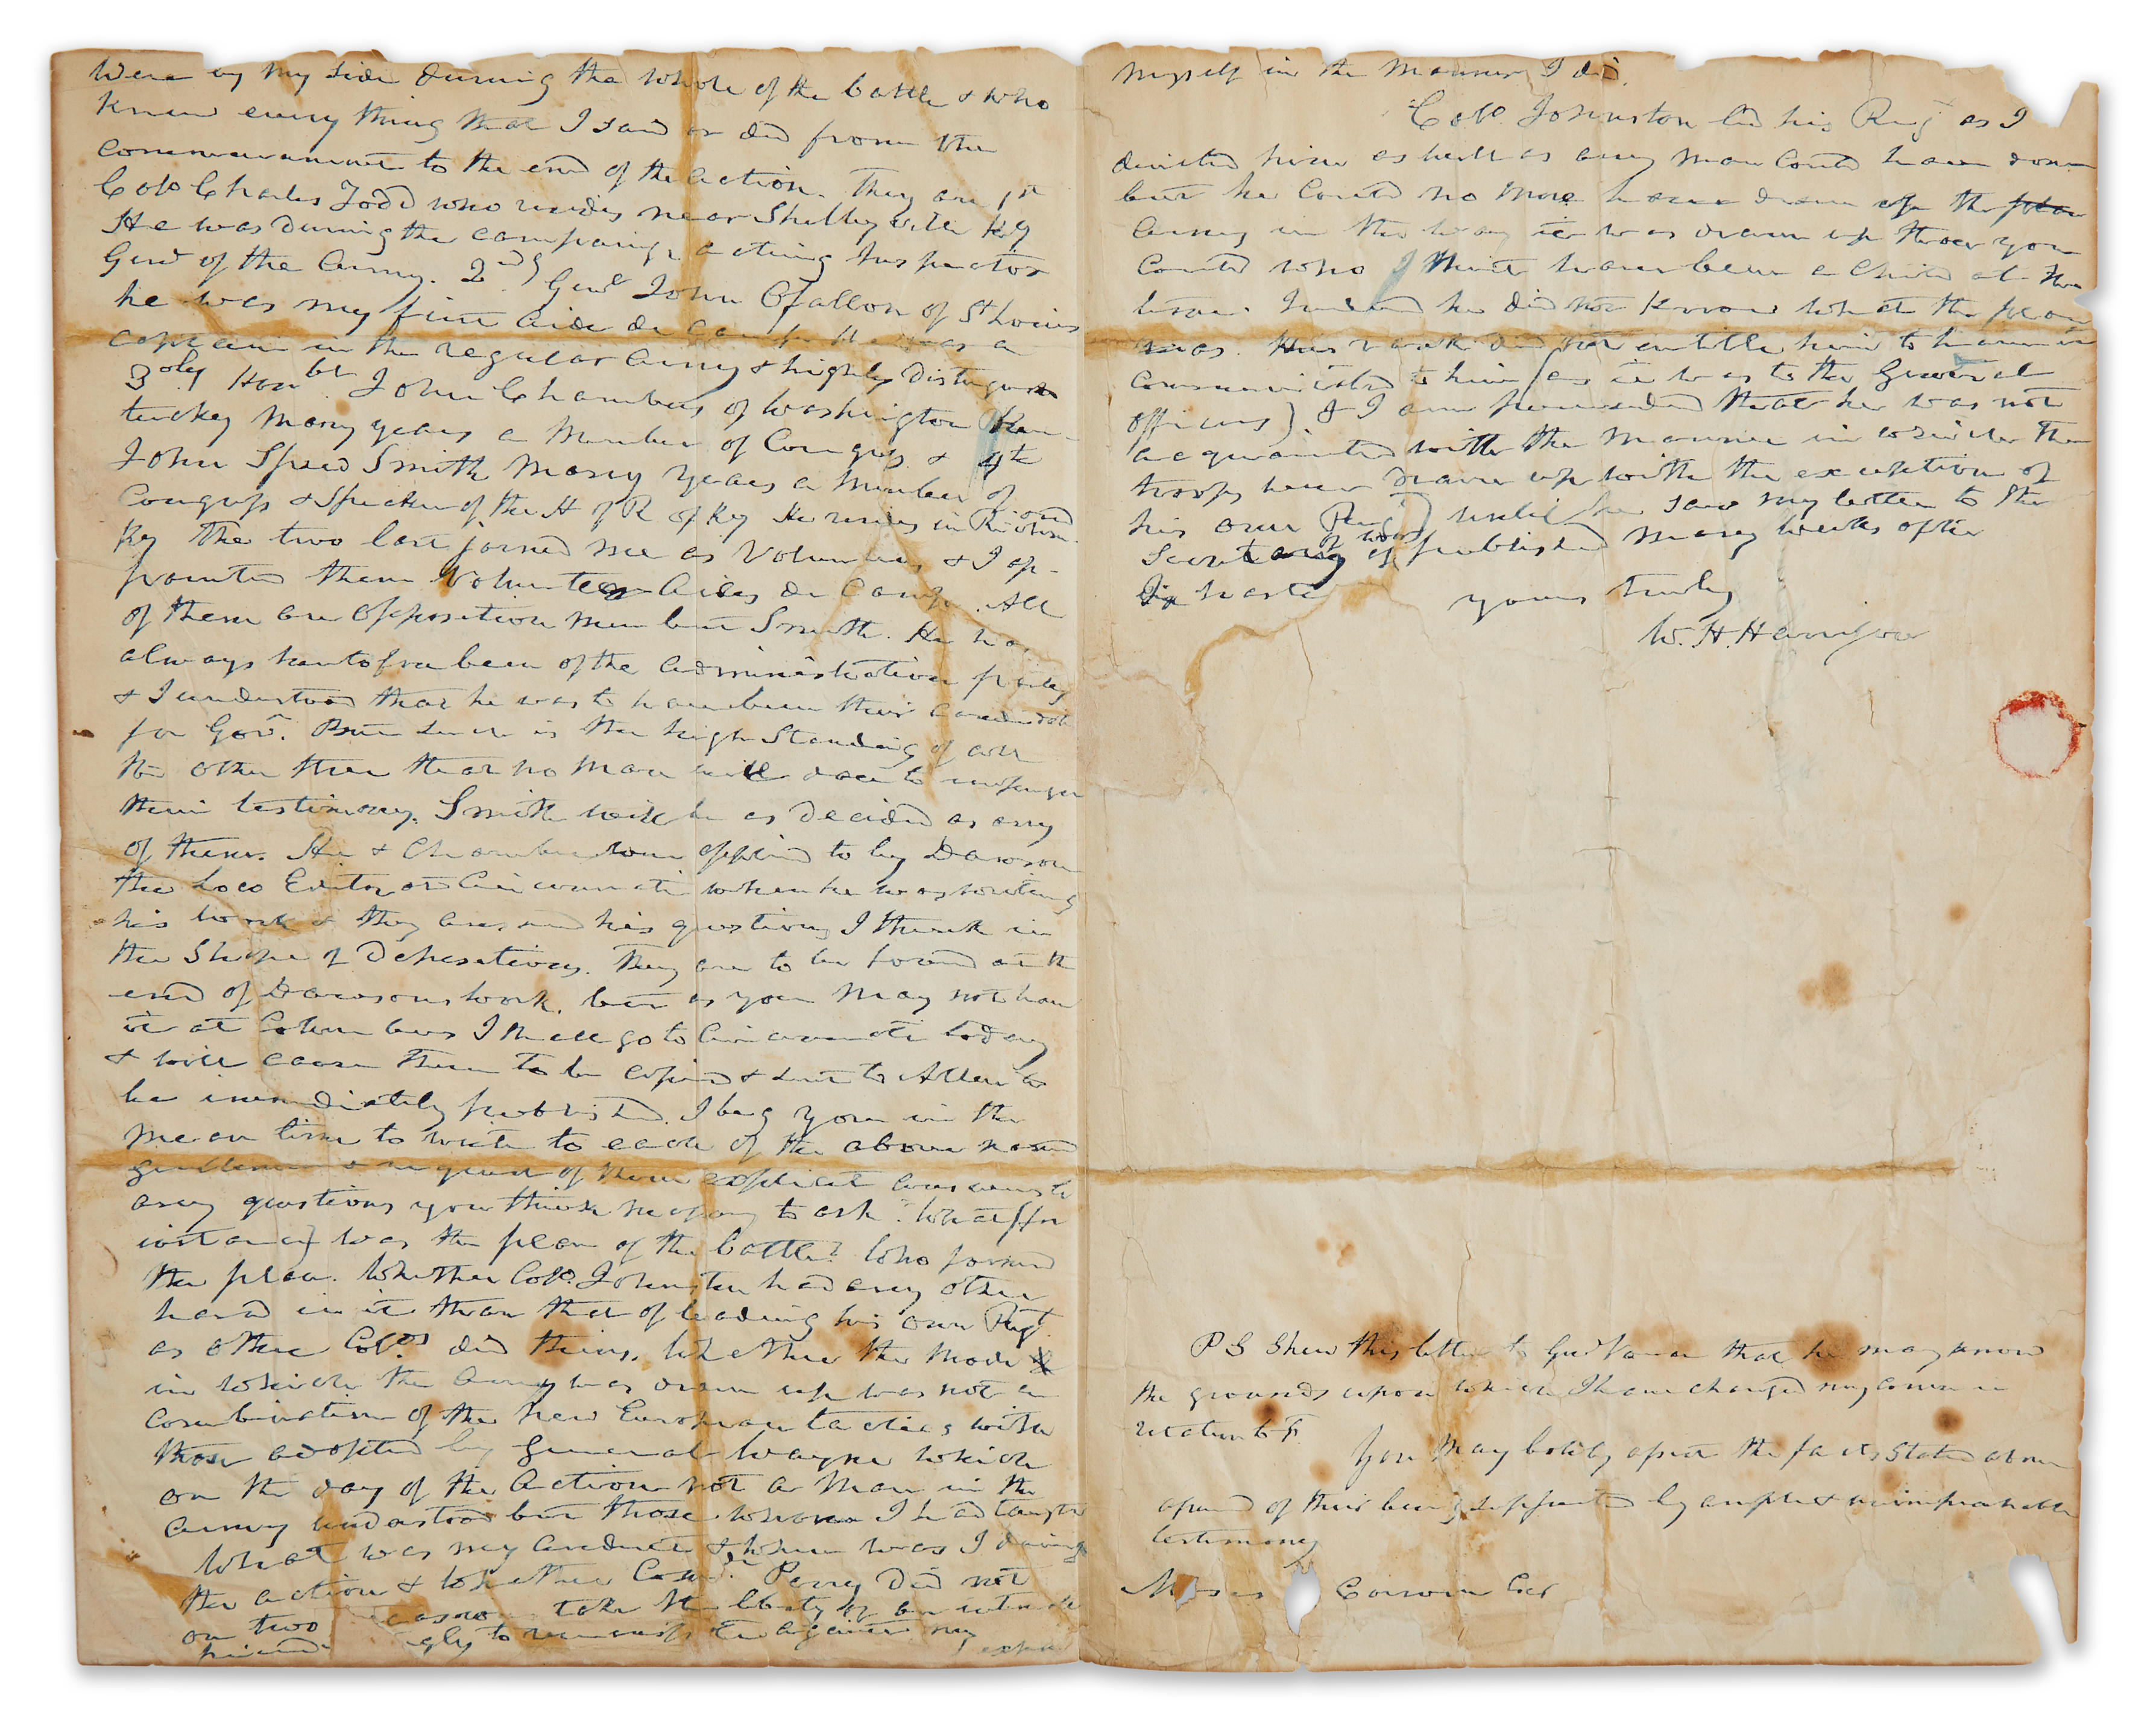 were by my side during the whole of the battle & who
knew every thing that I said or did from the
commencement to the end of the action. They are 1st
Colo Charles Todd who resides near Shelbyville Ky
He was during the campaign acting Inspector
Genl of the Army. 2ndly Genl John Ofallon of St Louis
he was my first aide de camp. He was a
captain in the regular army & highly distinguis
3dly Honble John Chambers of Washington Ken-
tucky many years a member of Congress & 4th
John Speed Smith many years a member of
Congress & Speaker of the H of R of Ky He resides in Richmond
Ky The two last joined me as Volunteers & I ap-
pointed them Volunteer Aides de Camp. All
of them are opposition men but Smith. He has
always heretofore been of the administration party
& I understood that he was to have been their candidate
for Govr. But such is the high standing of all
the other three that no man will dare to impugn
their testimony. Smith will be as decided as any
of them. He & Chambers were applied to by Dawson
the Loco Editor at Cincinnati when he was writing
his work & they answered his questions I think in
the shape of Depositions. They are to be found at the
end of Dawsons work. but as you may not have
it at Columbus I shall go to Cincinnati today
& will cause them to be copied & sent to Allen to
be immediately published. I beg you in the
mean time to write to each of the above named
gentlemen & request of them explicit answers to
any questions you think proper to ask. What (for
instance) was the plan of the battle? Who formed
the plan. Whether Colo. Johnston had any other
hand in it than that of leading his own Regt
as other Colos. did theirs. Whether the mode
in which the Army was drawn up was not a
combination of the new European tactics with
those adopted by General Wayne which
on the day of the action not a man in the
army understood but those whom I had taught
What was my conduct & where was I during
the action & whether Comde. Perry did not
on two occasions take the liberty of an intimate
friend to remonstrate against my
myself in the manner I did.
Colo. Johnston led his Regt as I
directed him as well as any man could have done
but he could no more have drawn up the plan
army in the way it was drawn up than you
could who I think have been a child at the
time. Indeed he did not know what the plan
was. His rank did not entitle him to have it
communicated to him (as it was to the General
officers) & I am persuaded that he was not
acquainted with the manner in which the
troops were drawn up (with the exception of
his own Regt) until he saw my letter to the
Secretary of War published many weeks after
In haste yours truly
W. H. Harrison
P S Shew this letter to Genl Vance that he may know
the grounds upon which I have changed my course in
relation to
You may boldly assert the facts stated above
assured of their being supported by ample & unimpeachable
testimony
Moses Corwin Esqr